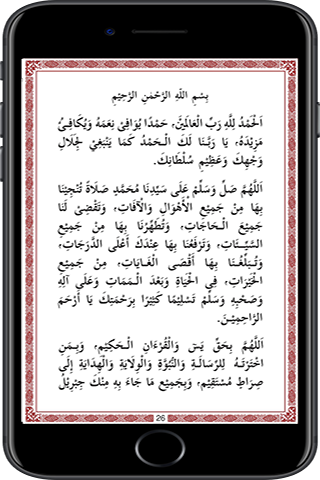 بِسْمِ اللّٰهِ الرَّحْمٰنِ الرَّحِيْمِ
اَلْحَمْدُ لِلّٰهِ رَبِّ الْعَالَمِيْنَ، حَمْدًا يُوَافِيْ نِعَمَهُ وَيُكَافِئُ
مَزِيْدَهُ، يَا رَبَّنَا لَكَ الْـحَمْدُ كَمَا يَنْبَغِيْ لِجَلَالِ
وَجْهِكَ وَعَظِيْمِ سُلْطَانِكَ.
اَللّٰهُمَّ صَلِّ وَسَلِّمْ عَلَى سَيِّدِنَا مُحَمَّدٍ صَلَاةً تُنْجِيْنَا
بِهَا مِنْ جَمِيْعِ الْأَهْوَالِ وَالْآفَاتِ، وَتَقْضِيْ لَنَا
جَمِيْعَ الْـحَاجَاتِ، وَتُطَهِّرُنَا بِهَا مِنْ جَمِيْعِ
السَّيِّـئَاتِ، وَتَرْفَعُنَا بِهَا عِنْدَكَ أَعْلَى الدَّرَجَاتِ،
وَتُـبَلِّـغُـنَا بِهَا أَقْصَى الْغَـايَاتِ، مِنْ جَمِيْعِ
الْخَيْرَاتِ، فِي الْحَيَاةِ وَبَعْدَ الْـمَمَاتِ وَعَلَى آلِهِ
وَصَحْبِهِ وَسَلِّمْ تَسْلِيْمًا كَثِيْرًا بِرَحْمَتِكَ يَا أَرْحَمَ
الرَّاحِمِيْـنَ.
اَللّٰهُمَّ بِحَقِّ يٰسٓ وَالْقُرْءَانِ الْـحَكِيْمِ، وَبِـمَنِ
اخْتَرْتَـهُ لِلرِّسَالَـةِ وَالنُّبُوَّةِ وَالْوِلَايَةِ وَالْهِدَايَةِ إِلَى
صِرَاطٍ مُسْتَقِيْمٍ، وَبِجَمِيْعِ مَا جَاءَ بِهِ مِنْكَ جِبْرِيْلُ
26